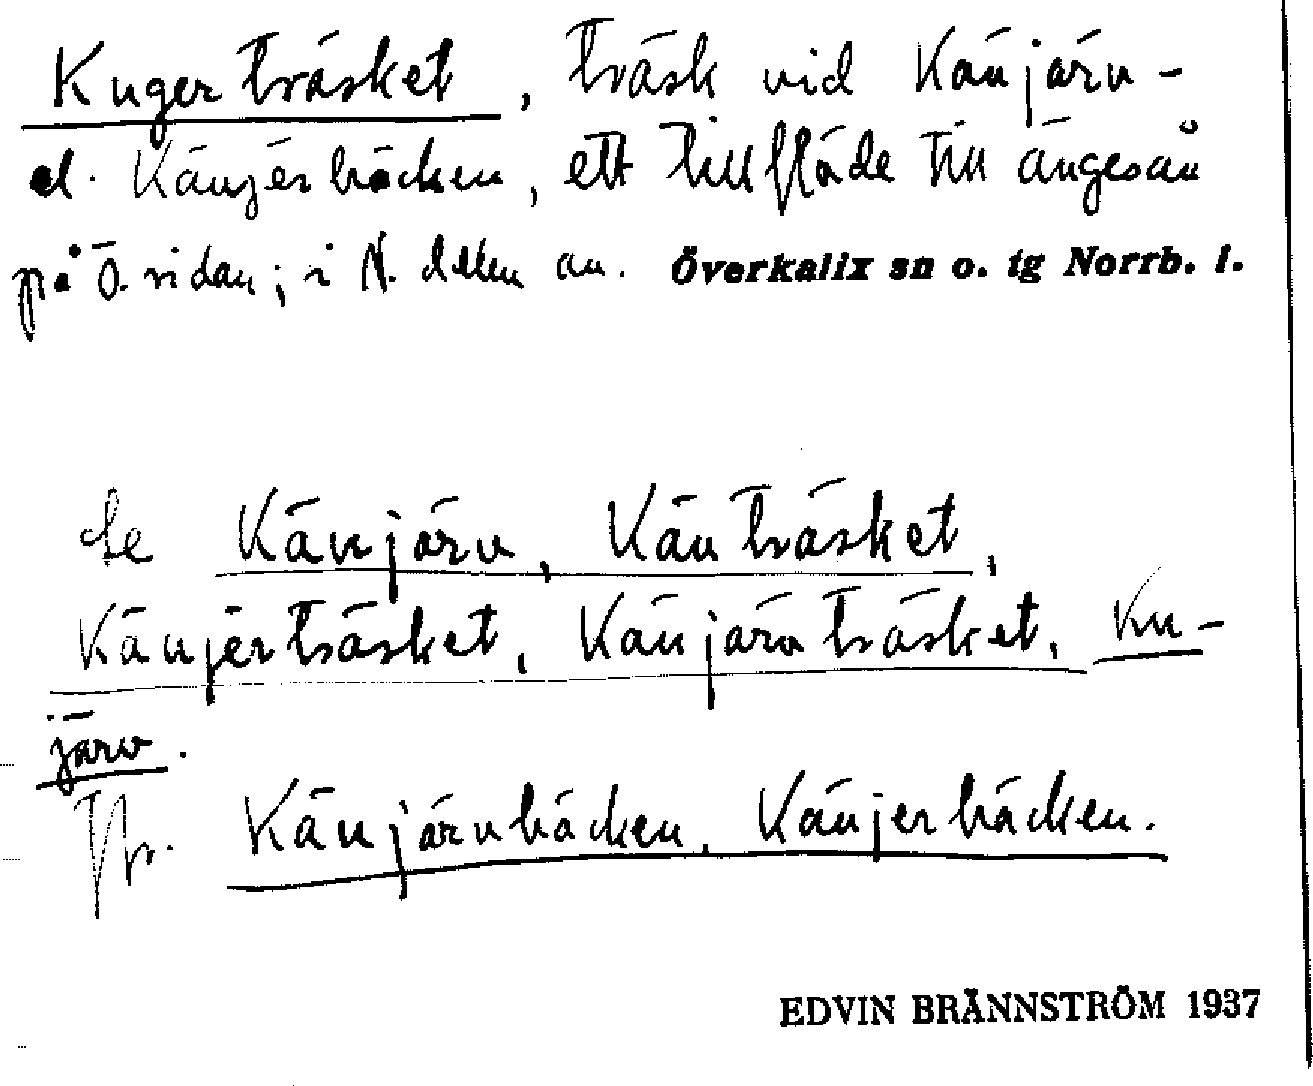 Kugerträsket, träsk vid Känjärv-
el. Känjérbäcken, ett tillflöde till ängesån
på Ö. sidan; i N. delen av. Överkalix sn o. tg Norrb. l.
Se Känjärv, Känträsket,
Känjérträsket, Känjärvträsket, Ku-
järv.
Jfr. Känjärvbäcken, Känjerbäcken.
EDVIN BRÄNNSTRÖM 1937